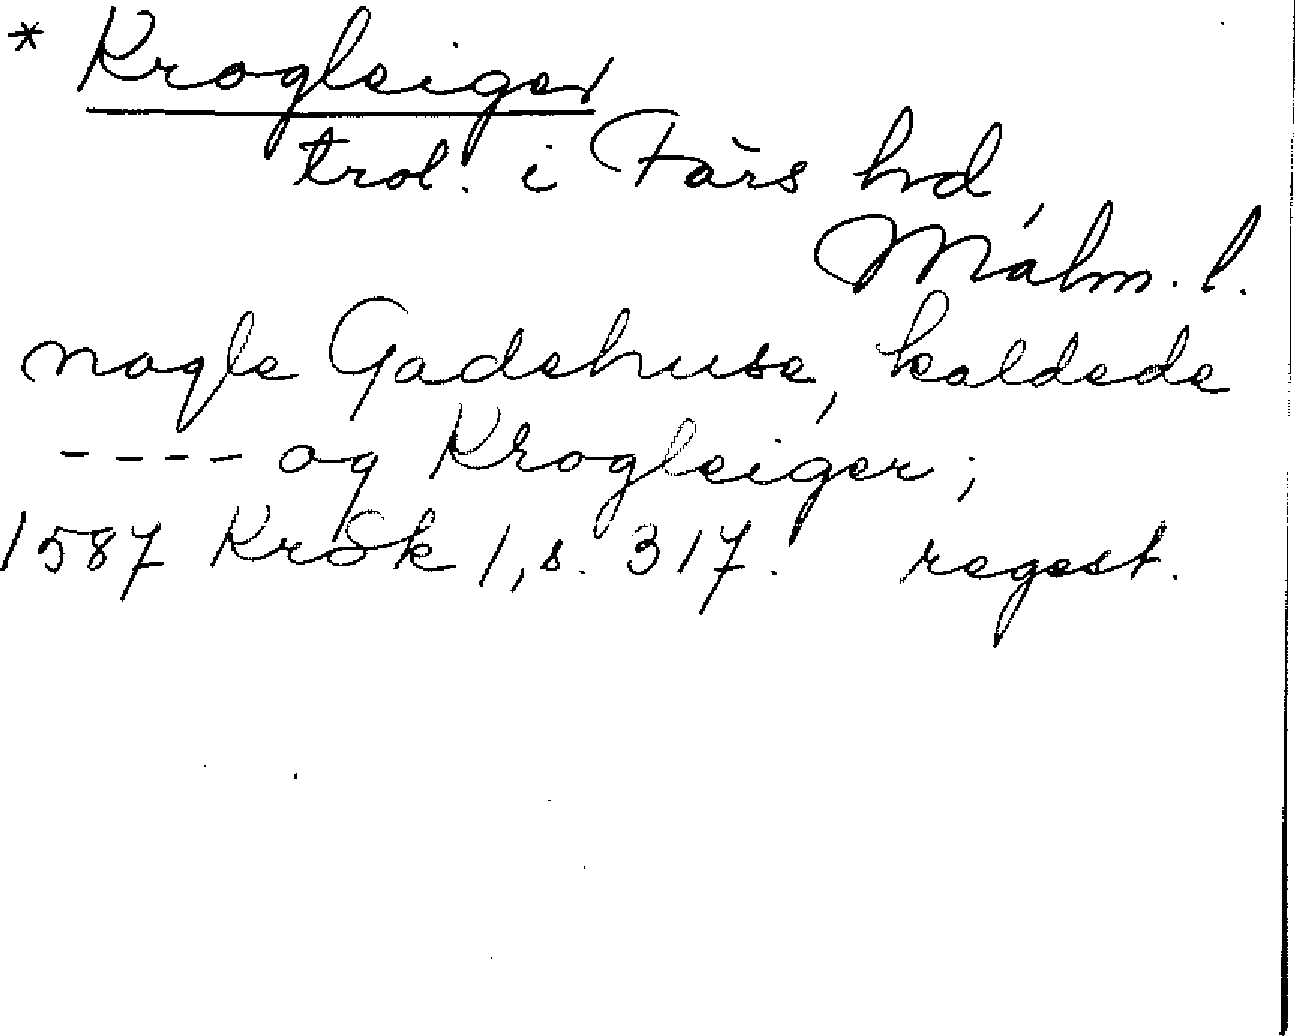 * Krogleiger
trol. i Färs hd,
Malm. l.
nogle Gadehuse, kaldede
---- og Krogleiger;
1587 KrSk 1, s. 317. regest.